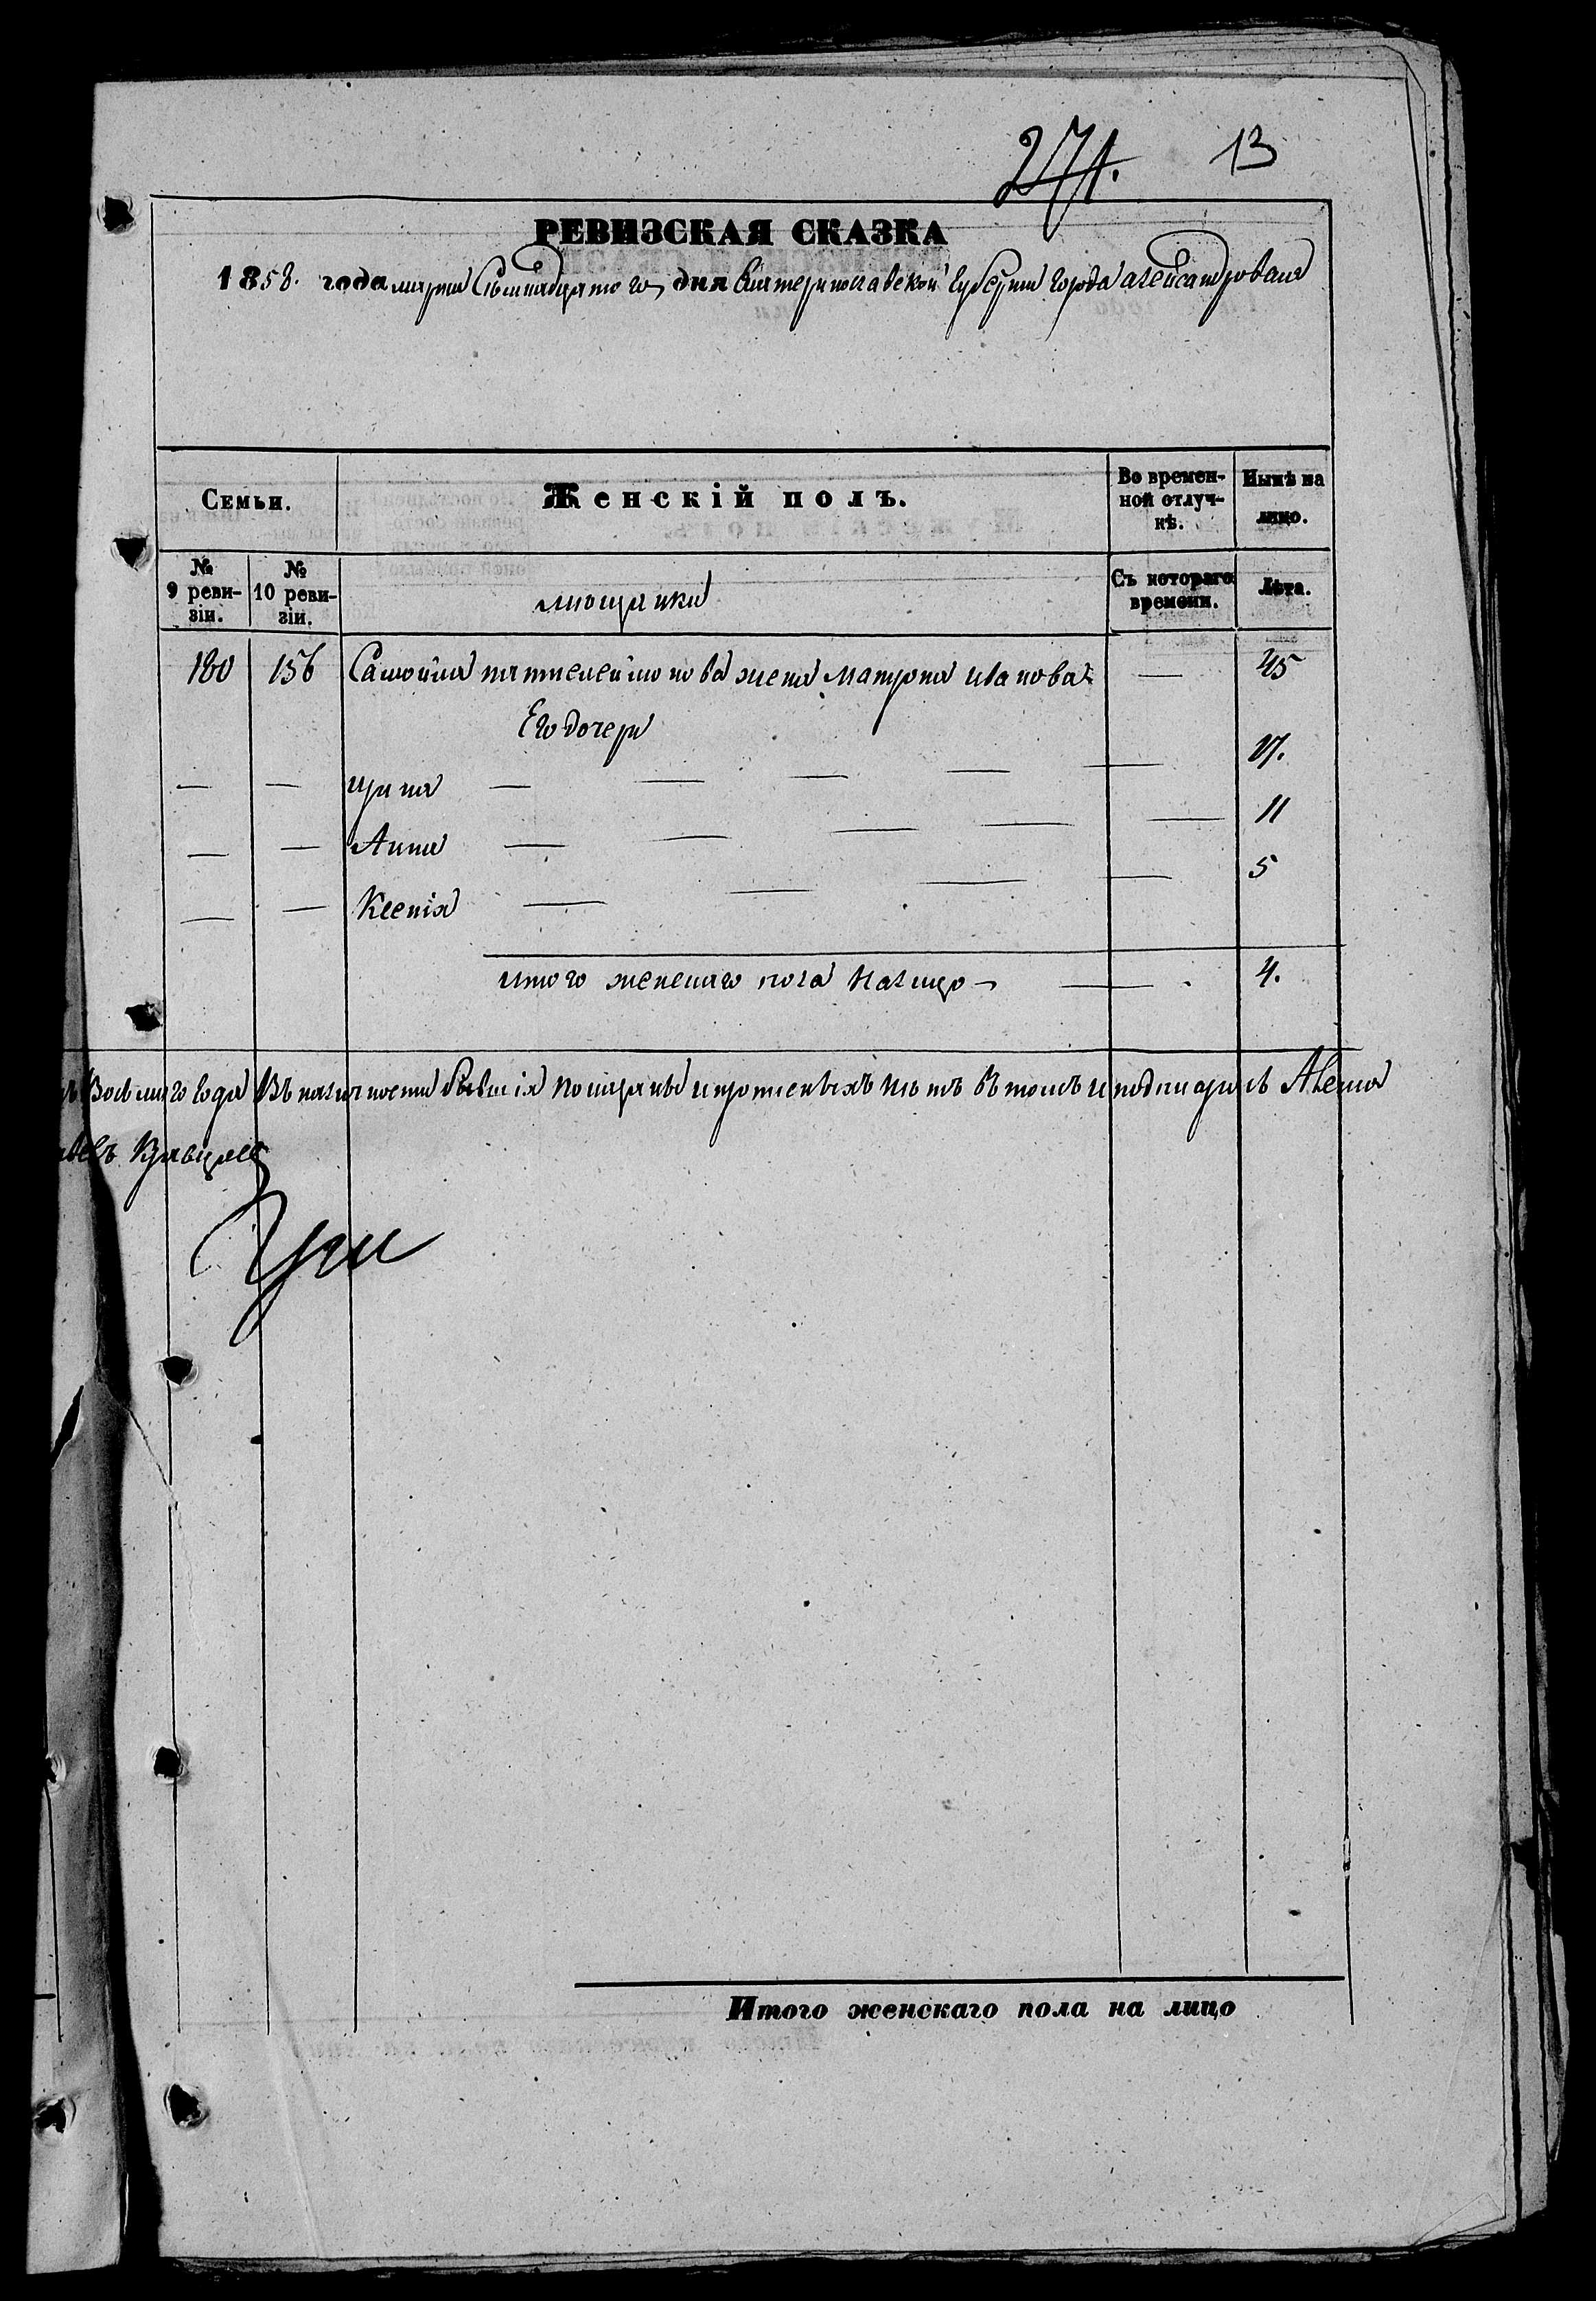 271. 13
РЕВИЗСКАЯ СКАЗКА
1858. года марта Семнадцатого дня Екатеринославской Губерніи города Александровска
Семьи.
Женскій полъ.
Во времен-
ной отлуч-
кѣ.
Нынѣ на
лицо.
№
9 реви-
зіи.
№
10 реви-
зіи.
мѣщанки
Съ котораго
времени.
Лѣта.
180 156 Самойла пантелеймонова жена Матрона иванова — 45
Его дочери
— — ирина — — — — — 17.
— — Анна — — — — — 11
— — Ксенія — — — — 5
итого женскаго пола налицо — — 4.
года Въ наличности бывшія показаны и пропускныхъ нѣтъ въ томъ и подписуюсь
Итого женскаго пола на лицо